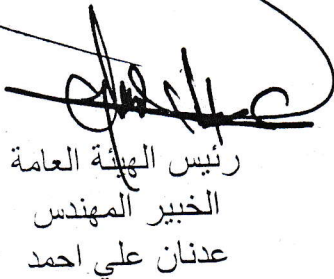 رئيس الهيئة العامة
الخبير المهندس
عدنان علي احمد